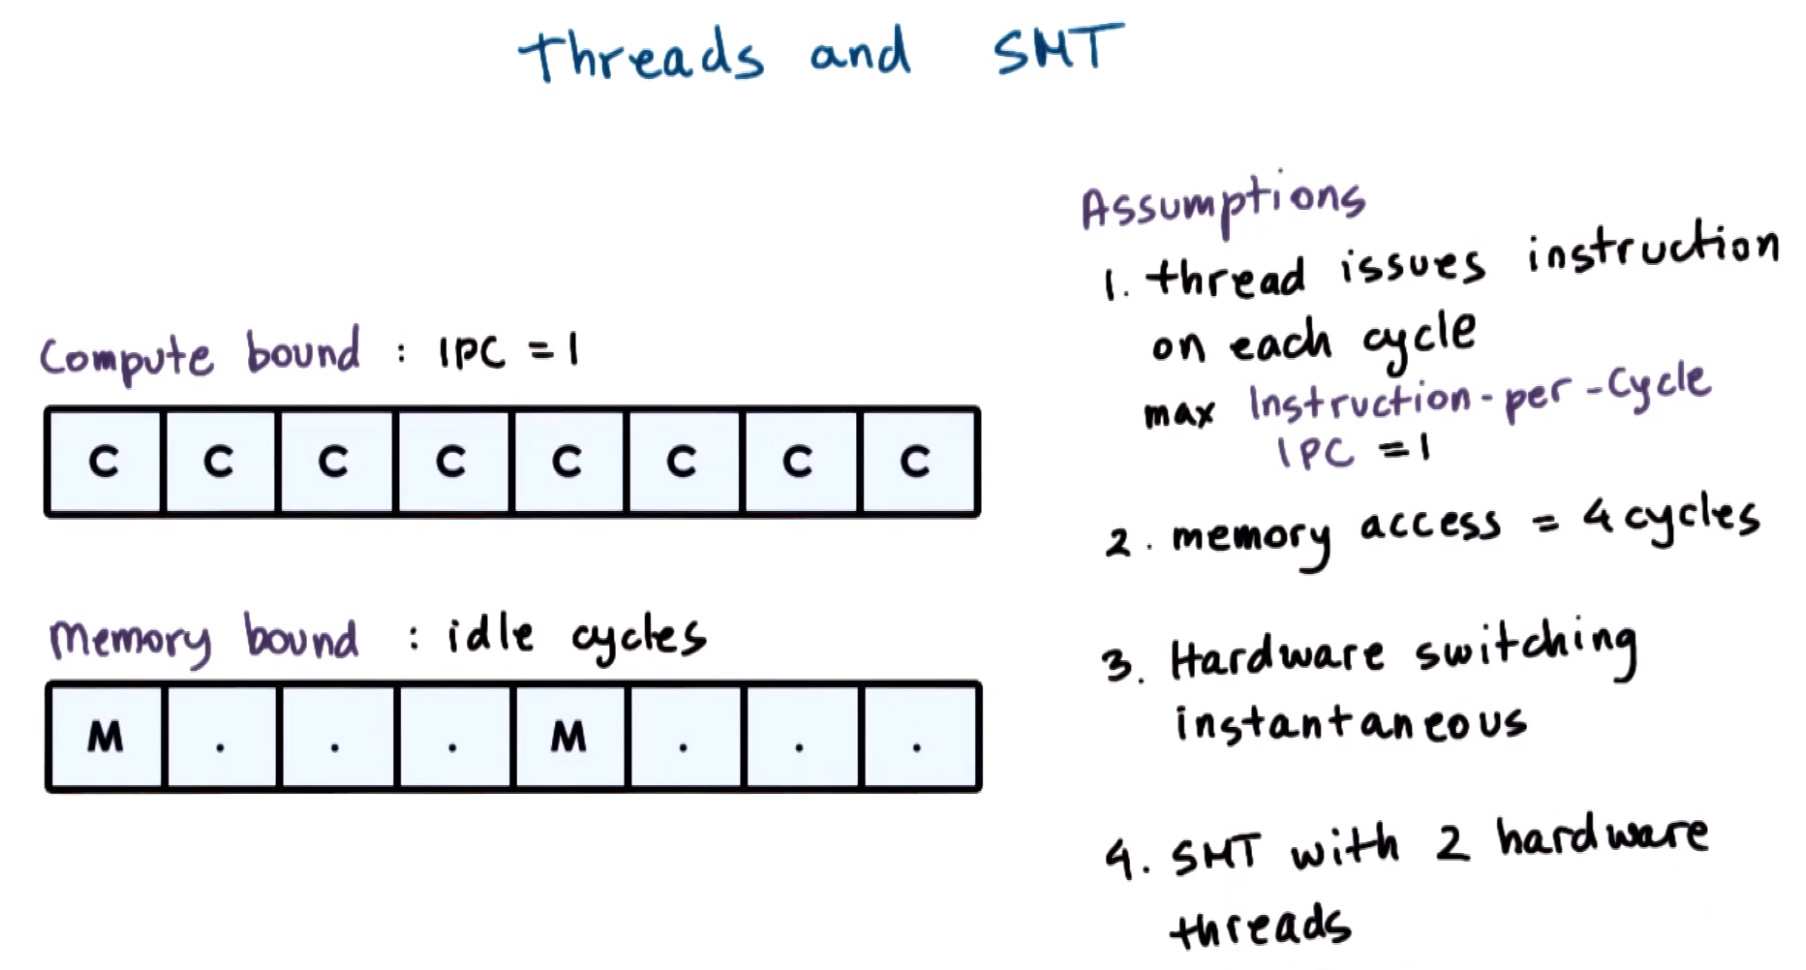 Threads and SMT
Compute bound : IPC = 1
C C C C C C C C
Memory bound : idle cycles
M . . . M . . .
Assumptions
1. thread issues instruction
on each cycle
max Instruction-per-Cycle
IPC = 1
2. memory access = 4 cycles
3. Hardware switching
instantaneous
4. SMT with 2 hardware
threads